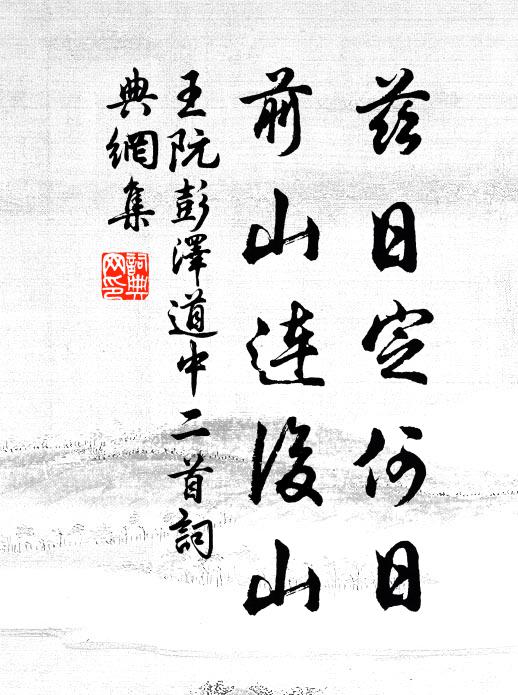 茲日定何日
前山連後山
王阮彭澤道中二首詞
典網集
詞典
网印